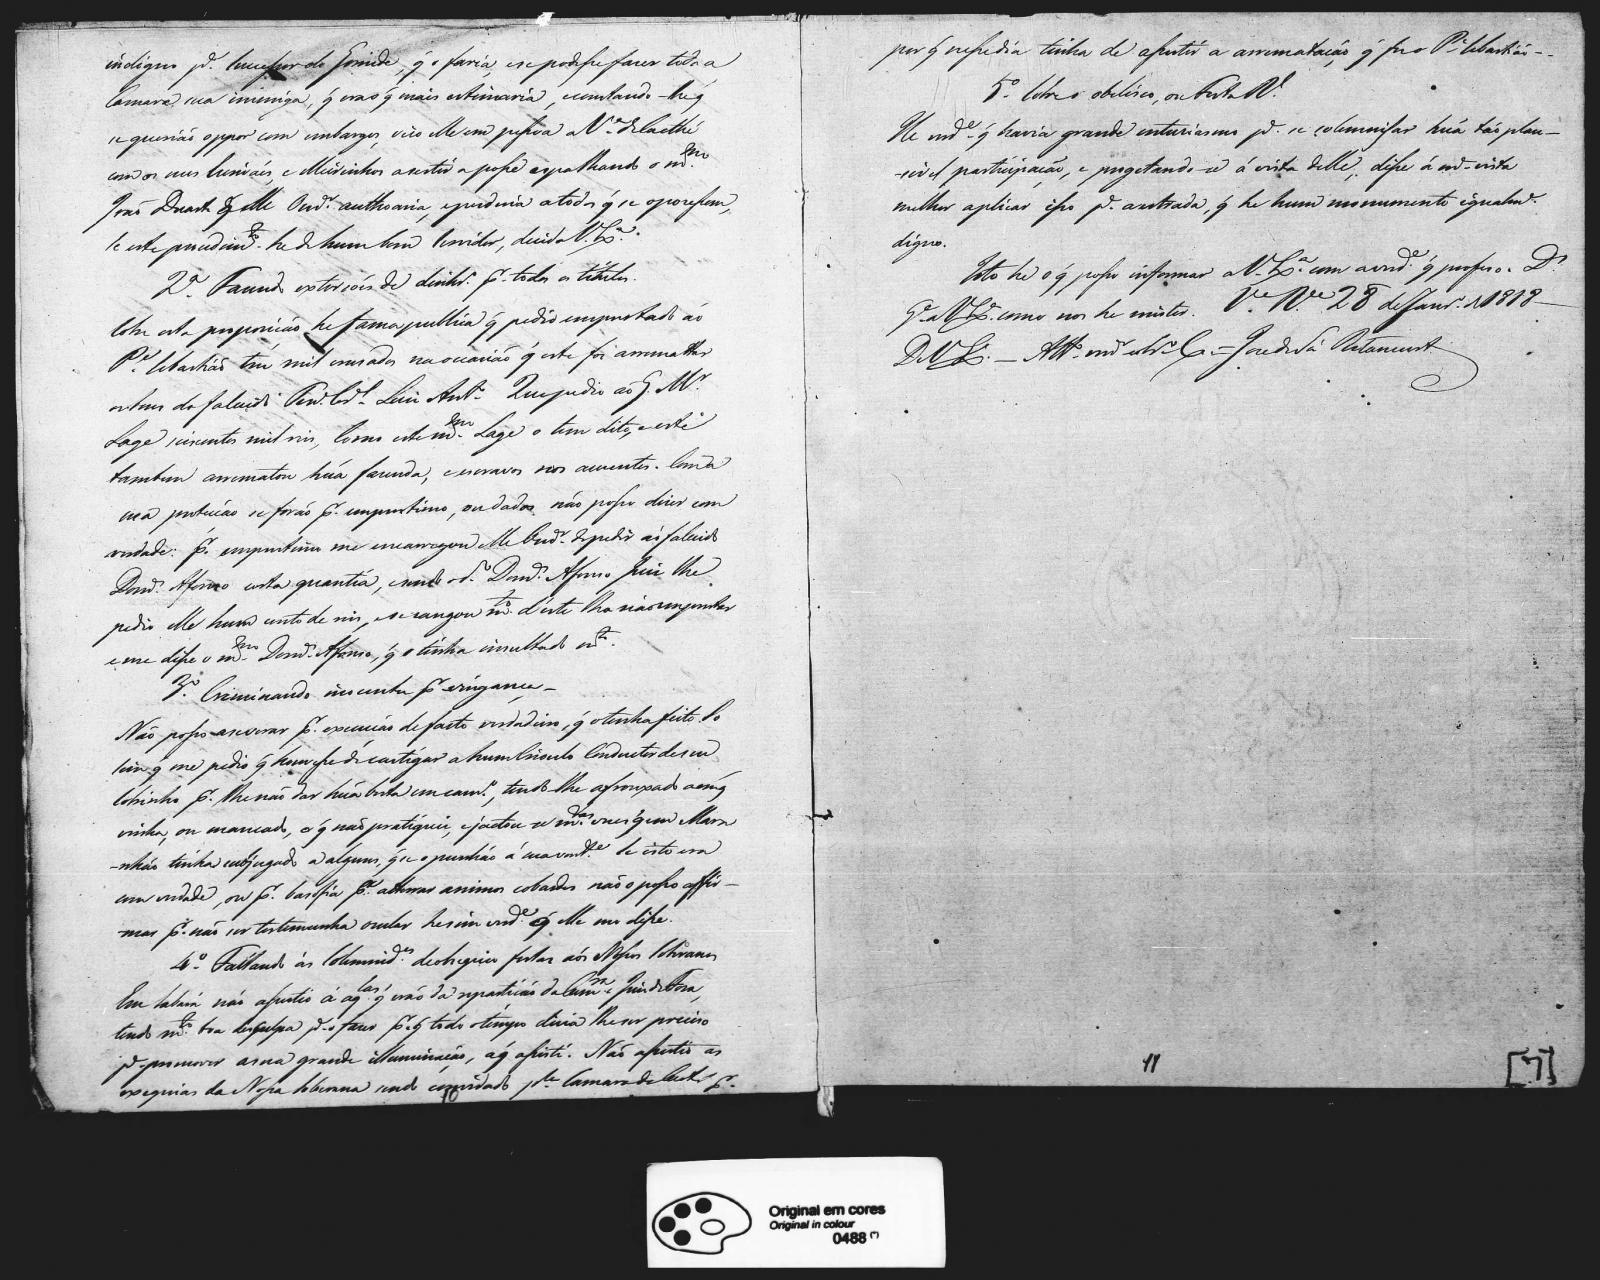 indigno p.ª successor do Gomide, q̃ o faria, e se podesse fazer toda a
Camara sua inimiga, q̃ era o q̃ mais estimaria, e constando-lhe q̃
se querião oppor com embargos, veio elle em pessoa a V.ª do Caethé
com os seus Escrivães, e Meirinhos assestir a posse espalhando o m.mo
João Duarte q̃ elle Ouv.or authoaria, e prederia a todos q̃ se oposessem,
se este procedim.to he de hum bom Servidor, decida V. Ex.ª
2.º Fazendo extorsões de dinhr.º p.r todos os titulos.
Sobre esta proposição he fama publica q̃ pedio emprestado ao
P.e Sebastião tres mil cruzados na occasião q̃ este foi arrematar
os bens do falecido Ten.e Cor.el Luiz Ant.º Que pedio ao G. Mr.
Lage seiscentos mil reis, como este m.mo Lage o tem dito, e este
tambem arrematou húa fazenda, e escravos nos auzentes. Com a
sua proteição se forão p.r emprestimo, ou dados não posso dizer com
verdade: p.r emprestimo me encarregou elle Ouv.or de pedir ao falecido
Dom.os Afonso certa quantia, sendo o d.º Dom.os Afonso Juiz lhe
pedio elle hum conto de reis, e se zangou m.to d'este lho não emprestar
e me disse o m.mo Dom.os Afonso, q̃ o tinha insultado m.to
3.º Criminando inocentes p.r vingança,-
Não posso asseverar p.r execução de facto verdadeiro, q̃ o tenha feito. So
sim q̃ me pedio q̃ houvesse de castigar a hum Crioulo Conductor de seu
Sobrinho p.r lhe não dar húa besta em cam.º, tendo-lhe afrouxado a em q̃
vinha, ou mancado, o q̃ não pratiquei, e jactou-se m.tas vezes q̃ em Mara
-nhão tinha subjugado a alguns, q̃ se opunhão á sua vont.e Se isto era
em verdade, ou p.r basofia p.ª aterrar animos cobardes não o posso affir-
-mar p.r não ser testemunha ocular he sim verd.e q̃ elle mo disse.
4.º Faltando ás Solemnid.es de obzequios festas aos Nossos Soberanos
Em Sabará não assestio á aq.las q̃ erão da repartição da Cam.ra e Juiz de Fora,
tendo m.to boa desculpa p.ª o fazer p.r q̃ todo o tempo diria lhe ser preciso
p.ª promover a sua grande illuminação, a q̃ assesti. Não assestio as
exequias da Nossa Soberana sendo convidado p.la Camara do Caeté p.r
10
por q̃ nesse dia tinha de assestir a arrematação, q̃ fez o P.e Sebastião--
5.º Sobre o obelisco, ou Festa R.l
He verd.e q̃ havia grande enturiasmo p.ª se solemnisar húa tão plau-
-sivel participação, e progetando-se á vista delle, disse á m.ª vista
melhor aplicar isso p.ª a estrada, q̃ he hum monumento igualm.te
digno.
Isto he o q̃ posso informar a V. Ex.ª com a verd.e q̃ professo. D.s
G.e a V. Ex.ª como nos he mister. V.ª N.ª 28 de Janr.º de 1818
De V. Ex.ª — Att.º ven.or e obr.º C. = Joze de Sá Betancurt
11
[7]
Original em cores
Original in colour
0488 (*)